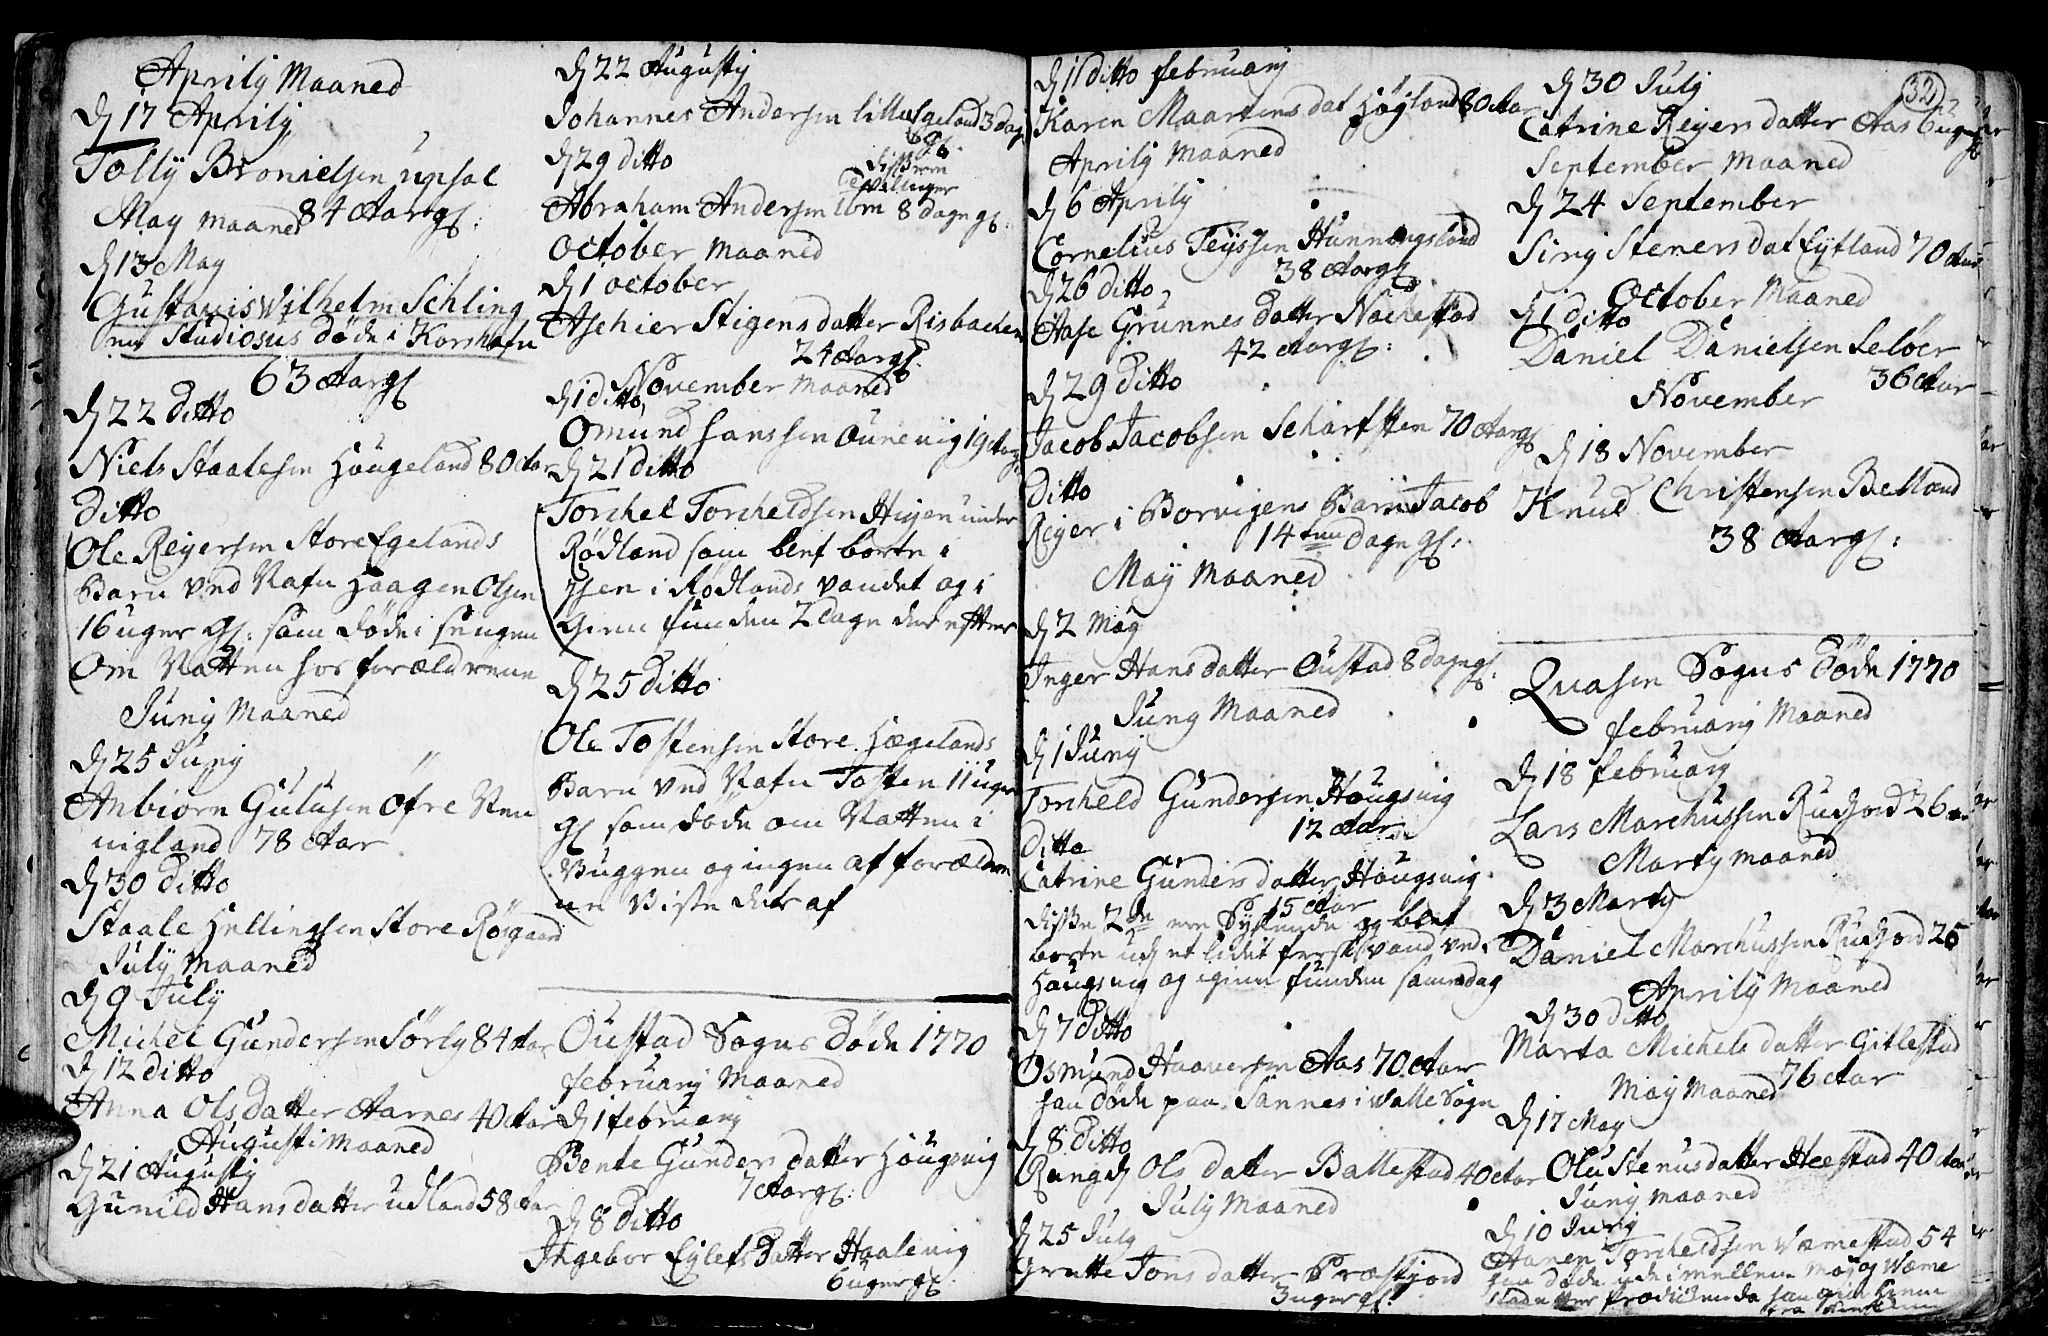 Aprilij Maaned
dj 17 Aprilij
Tolly Bronielsen upsal
84 Aar gl:
May Maaned
dj 13 May
Gustavis Wilhelm Schling
Studiosus døde i Korshafn
63 Aar gl
dj 22 ditto
Niels Staalesen Haugeland 80 Aar
ditto
Ole Reijersen Store Egelands
Barn ved Nafn Haagen Olsen
16 uger gl: som døde i sengen
Om Natten hos forældrene
Junij Maaned
dj 25 Junij
Anbiørn Gulusen Øfre Ven
nigland 78 Aar
dj 30 ditto
Staale Hellingsen Store Røsgaard
Julij Maaned
dj 9 Julij
Michel Gundersen Sørly 84 Aar
dj 12 ditto
Anna Olsdatter Aarnes 40 Aar
Augusti Maaned
dj 21 Augustj
Gunild Hansdatter udland 58 Aar
dj 22 Augustj
Johannes Andersen lille Egeland 3 dag
gl.
dj 29 ditto
disse ere
Tvilinger
Abraham Andersen ibm 8 dage gl:
October Maaned
dj 1 october
Aschier Stigensdatter Risbachen
24 Aar gl.
November Maaned
dj 1 ditto
Omund Hanssen Ounevig 19 dag
dj 21 ditto
Torchel Torcheldsen Stigen under
Rødland som blef borte i
Isen i Rødlands vandet og i
gien funden 2 dage der efter
dj 25 ditto
Ole Tostensen Store Hægelands
Barn ved Nafn Tosten 11 uger
gl som døde om Natten i
Vuggen og ingen af forældre
ne Viste der af
Oustad Sogns døde 1770
februarij Maaned
dj 1 februarij
Bente Gunders datter Høugsvig
7 Aar gl:
dj 8 ditto
Ingebor Eylefs Datter Haalevig
6 uger gl:
dj 11 ditto februarij
Karen Maartensdat Høyland 80 Aar
Aprilij Maaned
dj 6 Aprilij
Cornelius Teyssen Hunningsland
38 Aar gl
dj 26 ditto
Aase Grunnes datter Nochestad
42 Aar gl:
dj 29 ditto
Jacob Jacobsen Scharfsten 70 Aar gl
ditto
Reijer i Borvigens Barn Jacob
14 ten dage gl:
Maij Maaned
dj 2 Maij
Inger Hansdatter Oustad 8 dage gl:
Junij Maaned
dj 1 Junij
Torcheld Gundersen Høugsvig
12 Aar
ditto
Catrine Gunders datter Høugsvig
15 Aar
disse 2de vare Sydskende og blef
borte udj et lidet fersk vand ved
Høugsvig og igien funden samme dag
dj 7 ditto
Osmund Haaversen Aas 70 Aar
han døde paa Sannes i Walle Sogn
dj 8 ditto
Rangdj Ols datter Ballestad 40 Aar
Julij Maaned
dj 25 Julij
Grette Tons datter Præstjord
3 uger gl:
32
dj 30 Julij
Catrine Reijersdatter Aas 6 uger
gl
September Maaned
dj 24 September
Sirij Stenersdat Eytland 70 Aar
October Maaned
dj 1 ditto
Daniel Danielsen Seløer
36 Aar
November
dj 18 November
Knud Christensen Belland
38 Aar gl:
Quasen Sogns døde 1770
februarij Maaned
dj 18 februarij
Lars Marchussen Rudjord 26 Aar
Martij Maaned
dj 3 Martij
Daniel Marchussen Rudjord 25
Aprilij Maaned
dj 30 ditto
Marta Michels datter Gitlestad
76 Aar
Maij Maaned
dj 17 May
Olu Stenusdatter Heestad 40 Aar
Junij Maaned
dj 10 Junij
Aanen Torcheldsen Væmestad 54
han døde ude imellem Moj og Væme
stad efter da han gik hiem
fra